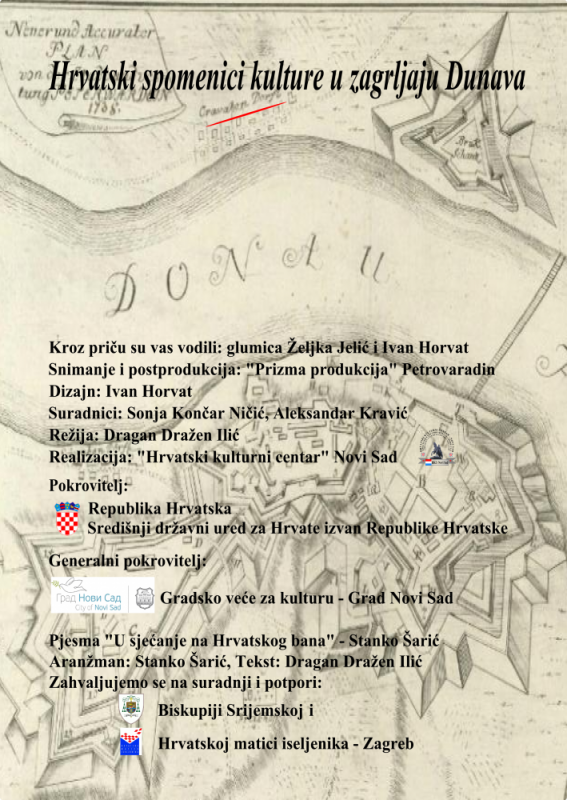 Neuer und Accurater
PLAN
von
tung PETERWARDEIN
1738.
Hrvatski spomenici kulture u zagrljaju Dunava
Cravaten Dorff
Bruk
Schantz
DONAU
Kroz priču su vas vodili: glumica Željka Jelić i Ivan Horvat
Snimanje i postprodukcija: "Prizma produkcija" Petrovaradin
Dizajn: Ivan Horvat
Suradnici: Sonja Končar Ničić, Aleksandar Kravić
Režija: Dragan Dražen Ilić
Realizacija: "Hrvatski kulturni centar" Novi Sad
Pokrovitelj:
Republika Hrvatska
Središnji državni ured za Hrvate izvan Republike Hrvatske
Generalni pokrovitelj:
Град Нови Сад
City of Novi Sad
Gradsko veće za kulturu - Grad Novi Sad
Pjesma "U sjećanje na Hrvatskog bana" - Stanko Šarić
Aranžman: Stanko Šarić, Tekst: Dragan Dražen Ilić
Zahvaljujemo se na suradnji i potpori:
Biskupiji Srijemskoj i
Hrvatskoj matici iseljenika - Zagreb